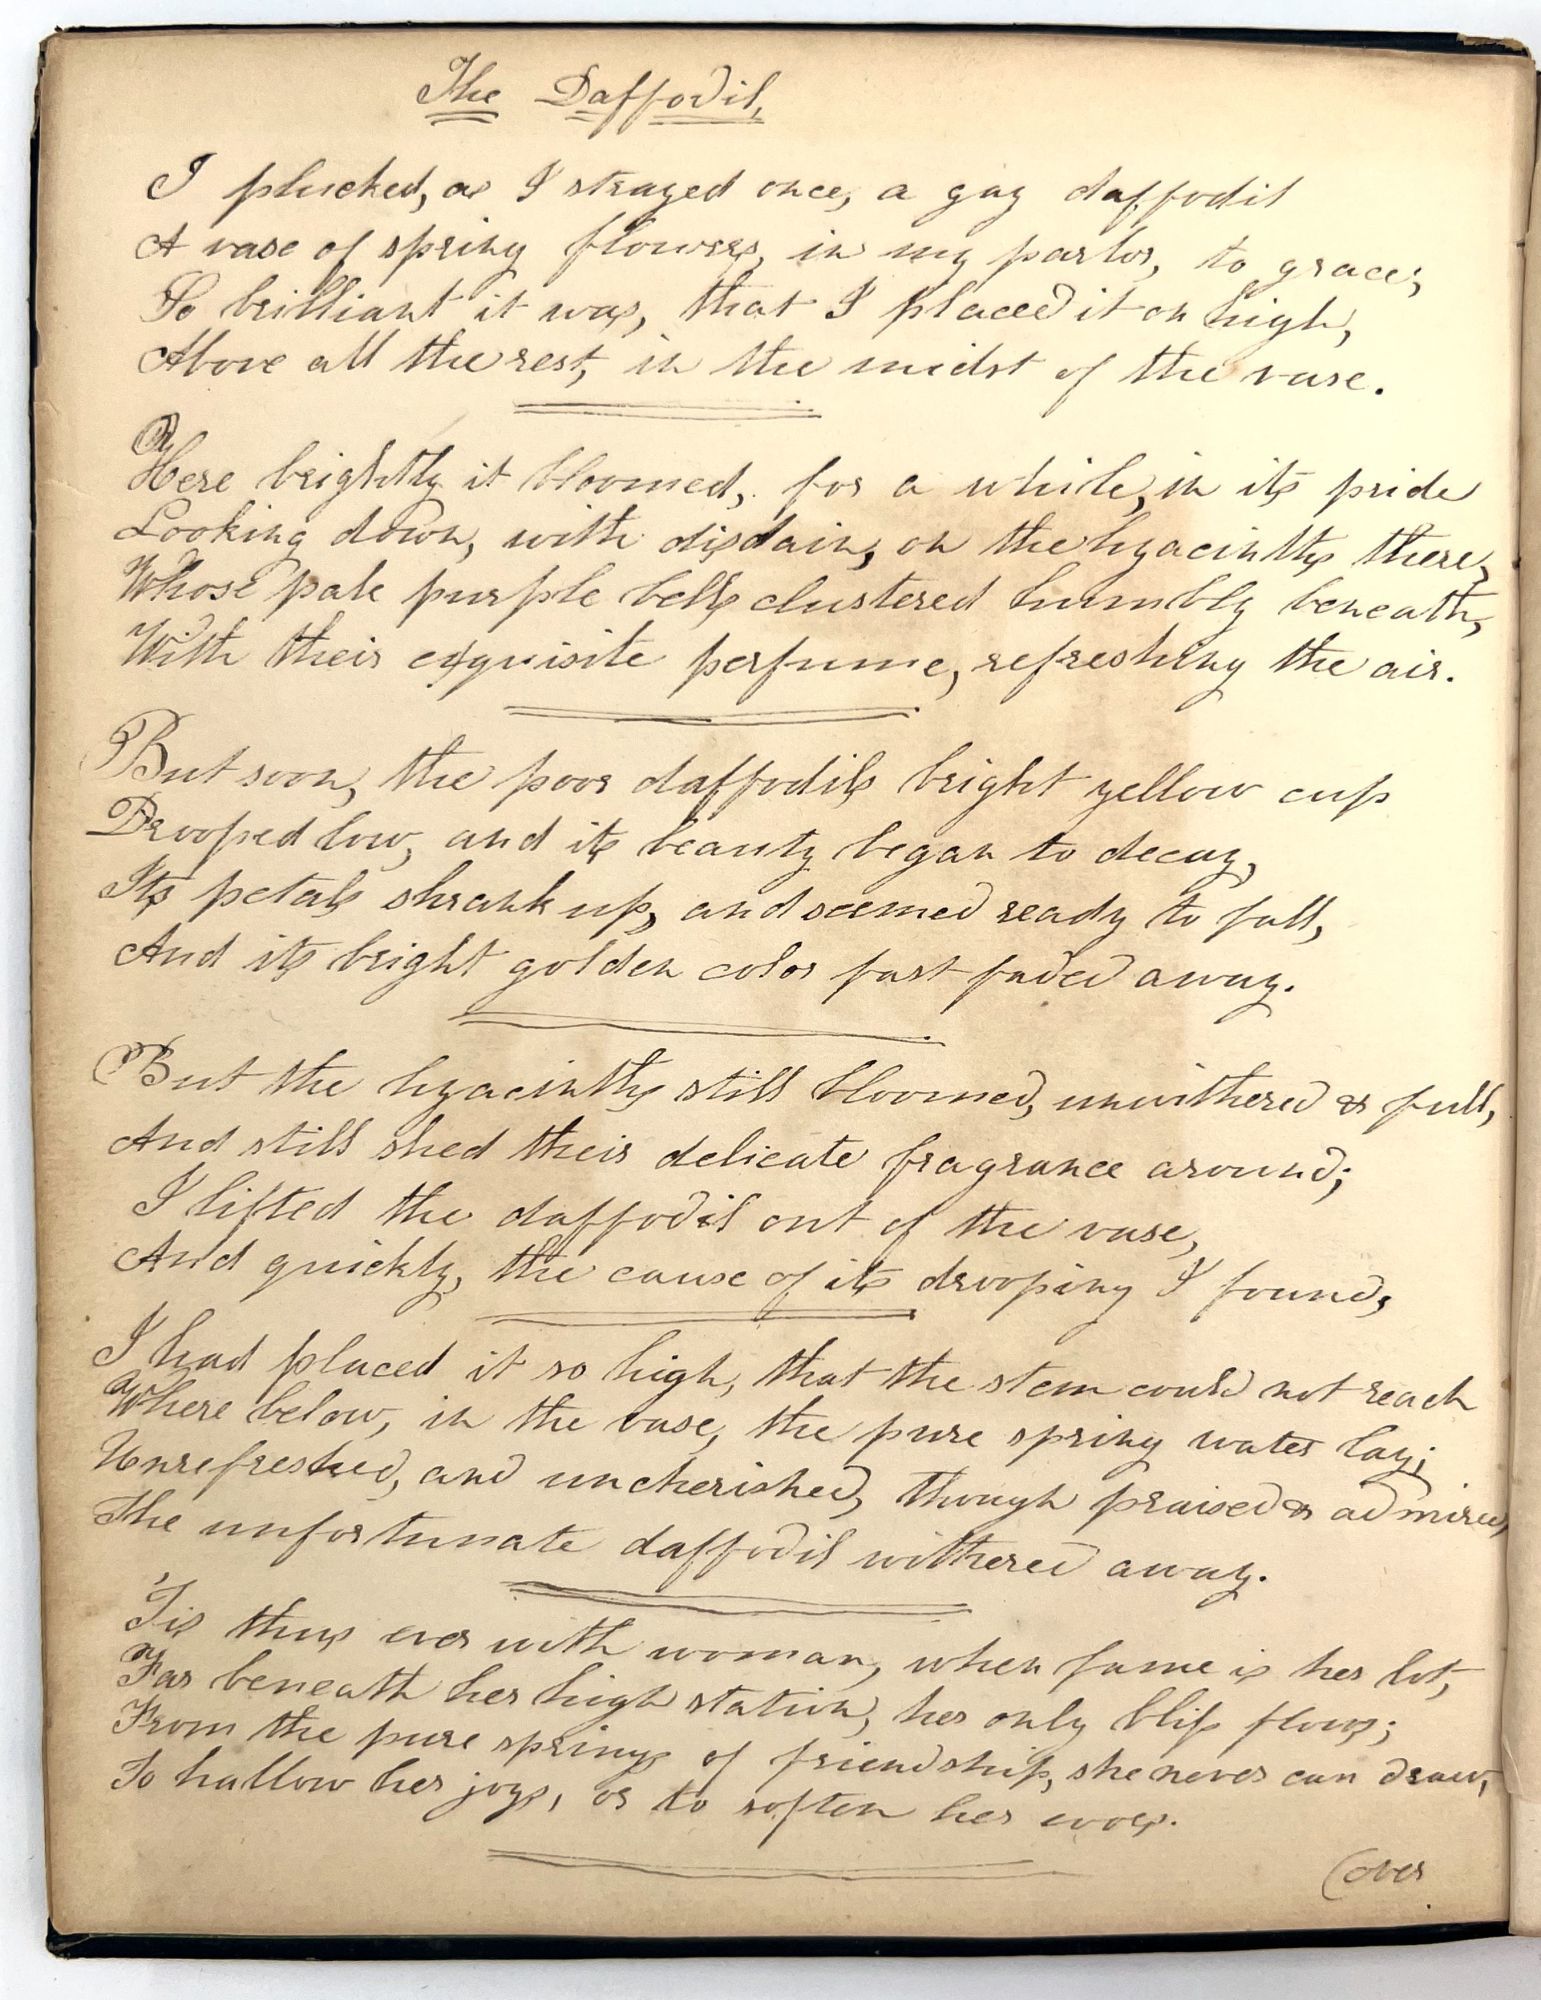 The Daffodil,
I plucked, as I strayed once, a gay daffodil
A vase of spring flowers, in my parlor, to grace;
So brilliant it was, that I placed it on high,
Above all the rest, in the midst of the vase.
Here brightly it bloomed, for a while, in its pride
Looking down, with disdain, on the hyacinths there,
Whose pale purple bells clustered humbly beneath,
With their exquisite perfume, refreshing the air.
But soon, the poor daffodils bright yellow cup
Drooped low, and its beauty began to decay,
Its petals shrank up, and seemed ready to fall,
And its bright golden color fast faded away.
But the hyacinths still bloomed, unwithered & full,
And still shed their delicate fragrance around;
I lifted the daffodil out of the vase,
And quickly, the cause of its drooping I found,
I had placed it so high, that the stem could not reach
Where below, in the vase, the pure spring water lay;
Unrefreshed, and uncherished, though praised & admired,
The unfortunate daffodil withered away.
'Tis thus ever with woman, when fame is her lot,
Far beneath her high station, her only bliss flows;
From the pure springs of friendship, she never can draw,
To hallow her joys, or to soften her woes.
(over